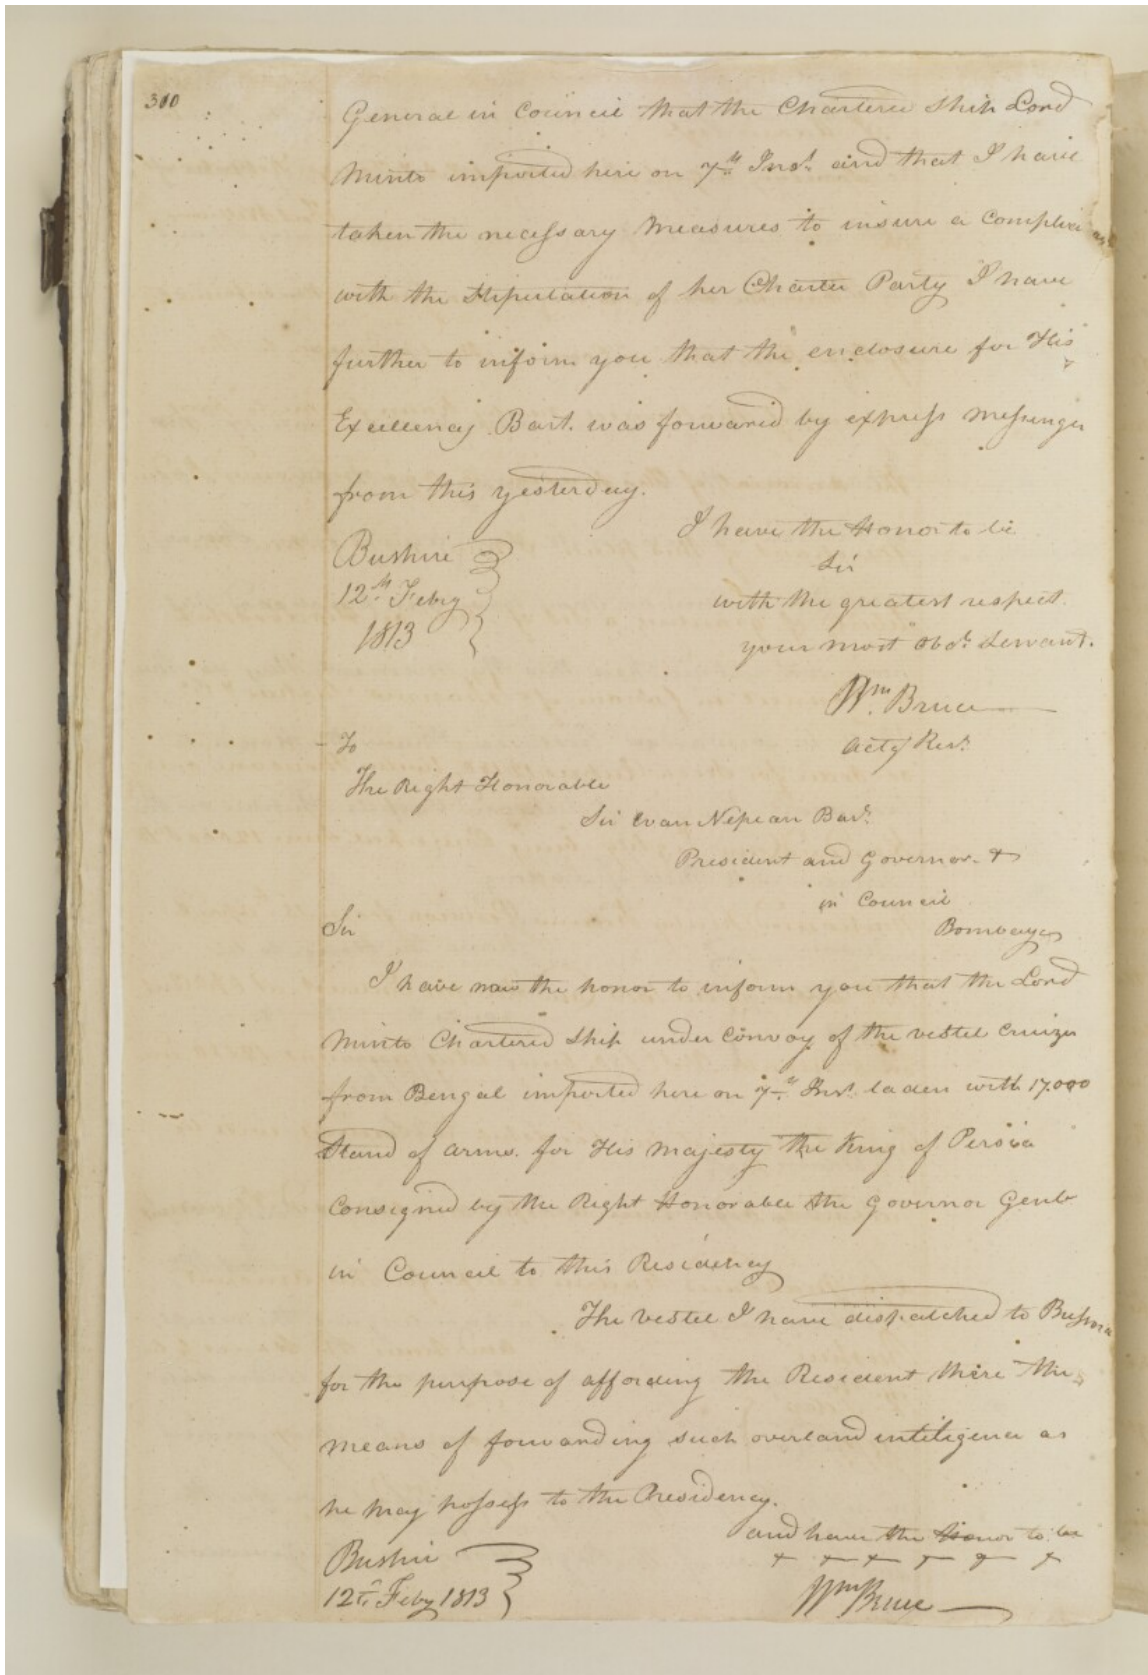 300
General in Council that the Chartered Ship Lord
Minto imported here on 7th Inst. and that I have
taken the necessary Measures to insure a
with the Stipulation of her Charter Party I have
further to inform you that the enclosure for His
Excellency Bart. was forward by express Messenger
from this yesterday.
I have the Honor to be
Sir
with the greatest respect
your most Obdt. Servant.
Wm. Bruce
Actg Rest.
Bushire
12th Feby
1813
To
The Right Honorable
Sir Evan Nepean Bart.
President and Governor &
in Council
Bombay
Sir
I have now the honor to inform you that the Lord
Minto Chartered Ship under Convoy of the vestel Cruizer
from Bengal imported here on 7th Inst. laden with 17.000
Stand of arms. for His Majesty the King of Persia
Consigned by the Right Honorable the Governor Genl.
in Council to this Residency
The vestel I have dispatched to Bussora
for the purpose of affording the Resident there the
means of forwanding such overland intiligence as
he may possess to the Presidency.
and have the Honor to be
Wm Bruce
Bushire
12th Feby 1813